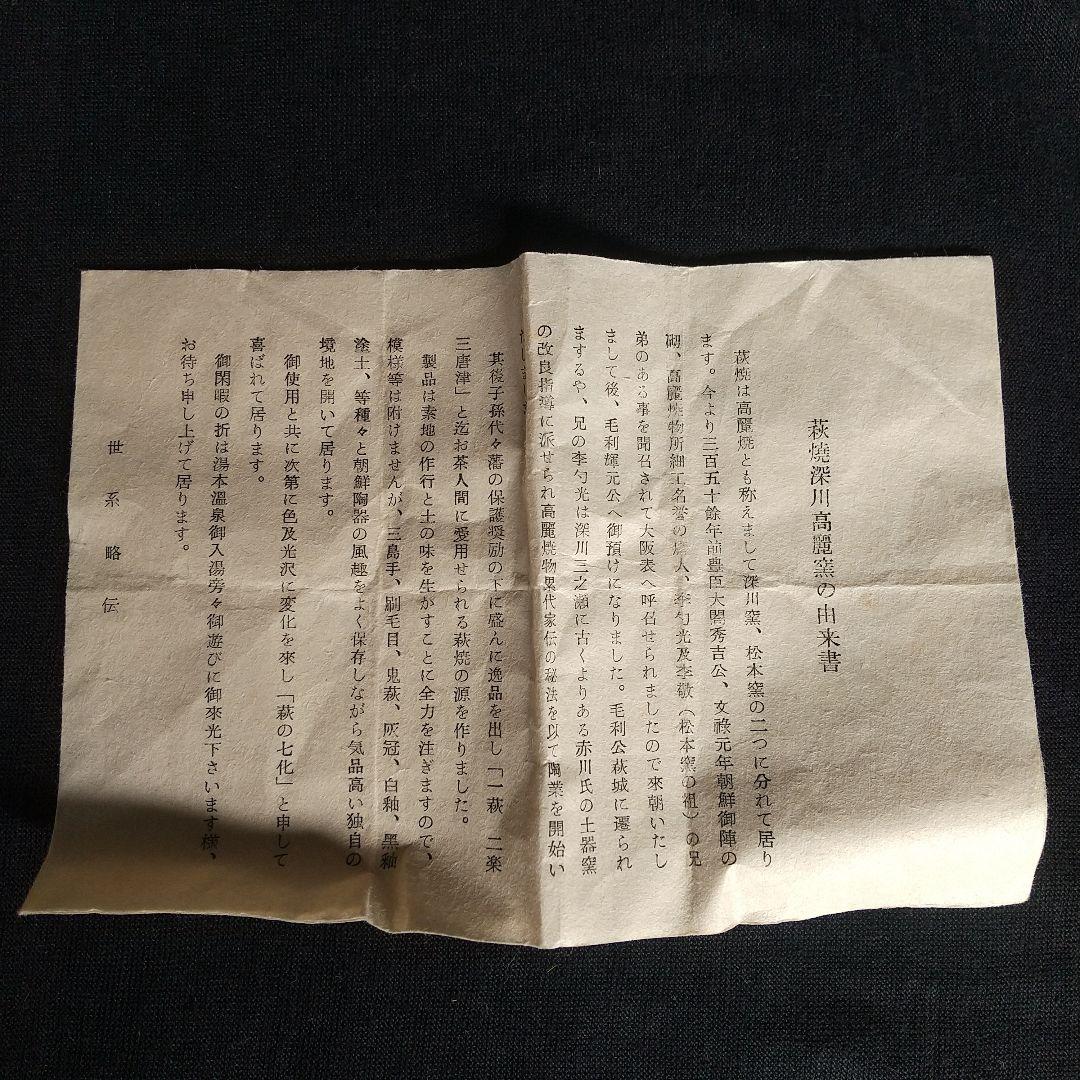 萩燒深川高麗窯の由来書
萩焼は高麗焼とも称えまして深川窯、松本窯の二つに分れて居り
ます。今より三百五十餘年前豊臣大閤秀吉公、文祿元年朝鮮御陣の
砌、高麗焼物所細工名誉の唐人、李勺光及李敬（松本窯の祖）の兄
弟のある事を聞召されて大阪表へ呼召せられましたので來朝いたし
まして後、毛利輝元公へ御預けになりました。毛利公萩城に遷られ
まするや、兄の李勺光は深川三之瀬に古くよりある赤川氏の土器窯
の改良指導に派せられ高麗焼物累代家伝の秘法を以て陶業を開始い
たしま
其後子孫代々藩の保護奨励の下に盛んに逸品を出し「一萩　二楽
三唐津」と迄お茶人間に愛用せられる萩焼の源を作りました。
製品は素地の作行と土の味を生がすことに全力を注ぎますので、
模様等は附けませんが、三島手、刷毛目、鬼萩、灰冠、白釉、黑釉
塗土、等種々と朝鮮陶器の風趣をよく保存しながら気品高い独自の
境地を開いて居ります。
御使用と共に次第に色及光沢に変化を來し「萩の七化」と申して
喜ばれて居ります。
御閑暇の折は湯本溫泉御入湯旁々御遊びに御來光下さいます樣、
お待ち申し上げて居ります。
世系略伝